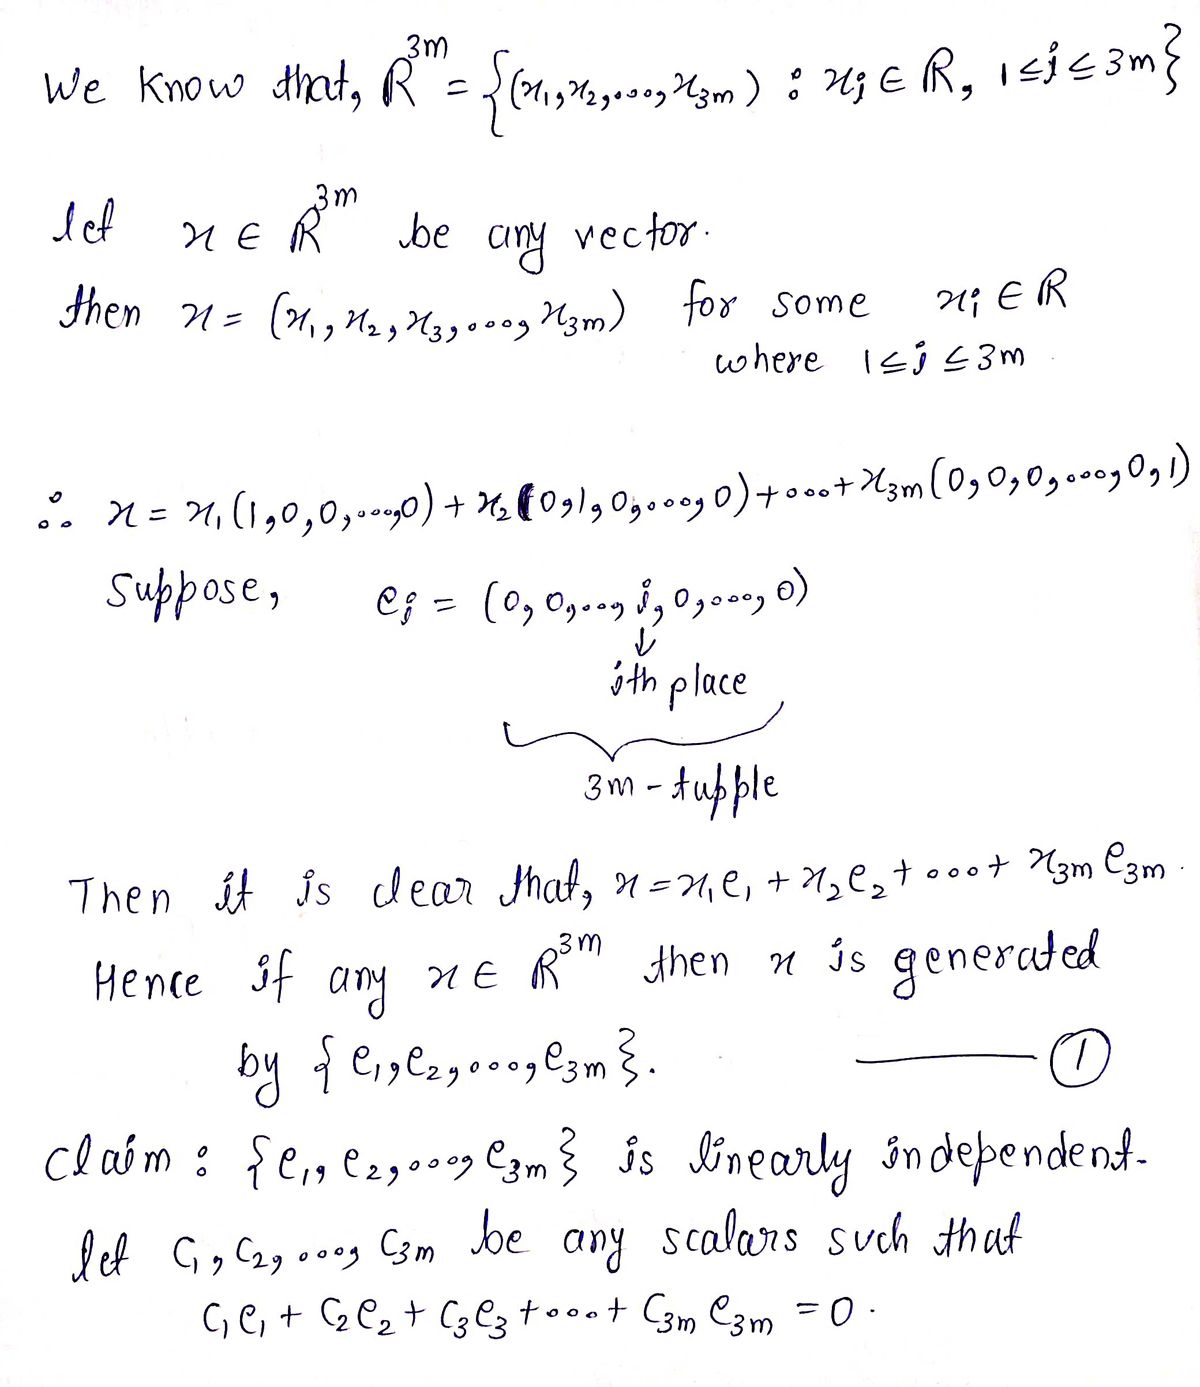 We know that, R^3m = {(x1, x2, ..., x3m) : xi ∈ R, 1 ≤ i ≤ 3m}
let x ∈ R^3m be any vector.
then x = (x1, x2, x3, ..., x3m) for some xi ∈ R
where 1 ≤ i ≤ 3m
∴ x = x1(1,0,0,...,0) + x2(0,1,0,...,0) + ... + x3m(0,0,0,...,0,1)
Suppose, ei = (0, 0, ..., i, 0, ..., 0)
↓
ith place
3m - tupple
Then it is clear that, x = x1e1 + x2e2 + ... + x3m e3m.
Hence if any x ∈ R^3m then x is generated
by {e1, e2, ..., e3m}. ——— ①
Claim : {e1, e2, ..., e3m} is linearly independent.
let C1, C2, ..., C3m be any scalars such that
C1e1 + C2e2 + C3e3 + ... + C3m e3m = 0.